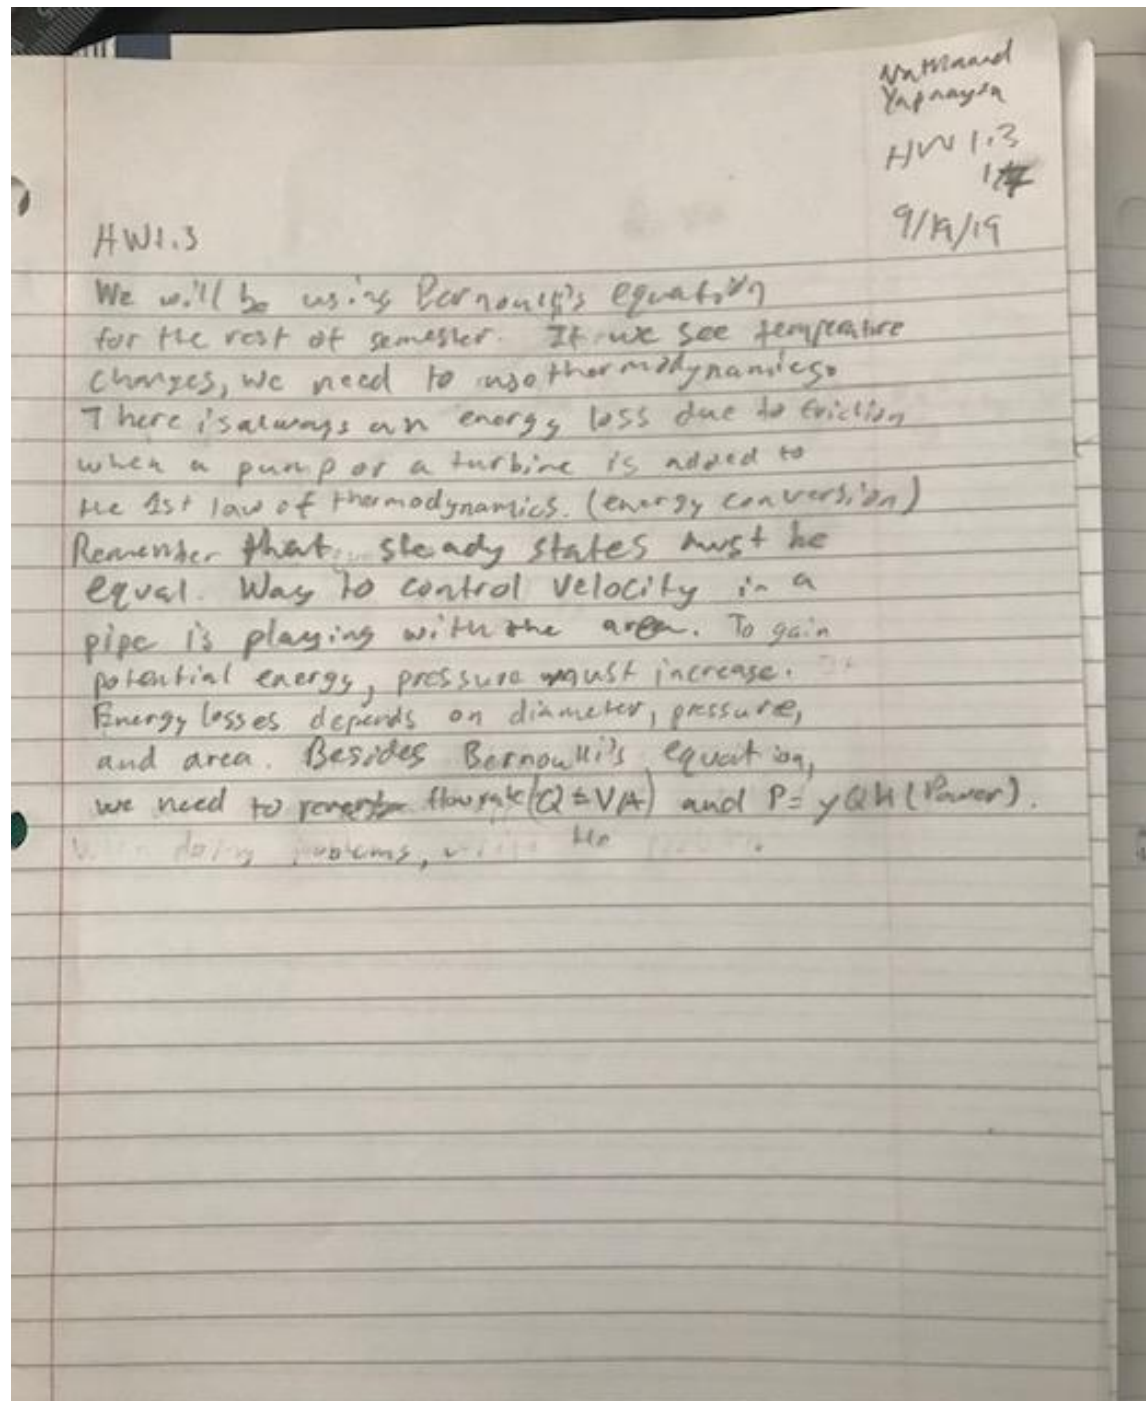 HW 1.3
9/19/19
HW1.3
We will be using Bernoulli's equation
for the rest of semester. If we see temperature
changes, we need to use thermodynamics.
There is always an energy loss due to friction
when a pump or a turbine is added to
the 1st law of thermodynamics. (energy conversion)
Remember that steady states must be
equal. Way to control velocity in a
pipe is playing with the area. To gain
potential energy, pressure must increase.
Energy losses depends on diameter, pressure,
and area. Besides Bernoulli's equation,
we need to flowrate (Q = VA) and P = γQh (Power).
doing problems, the